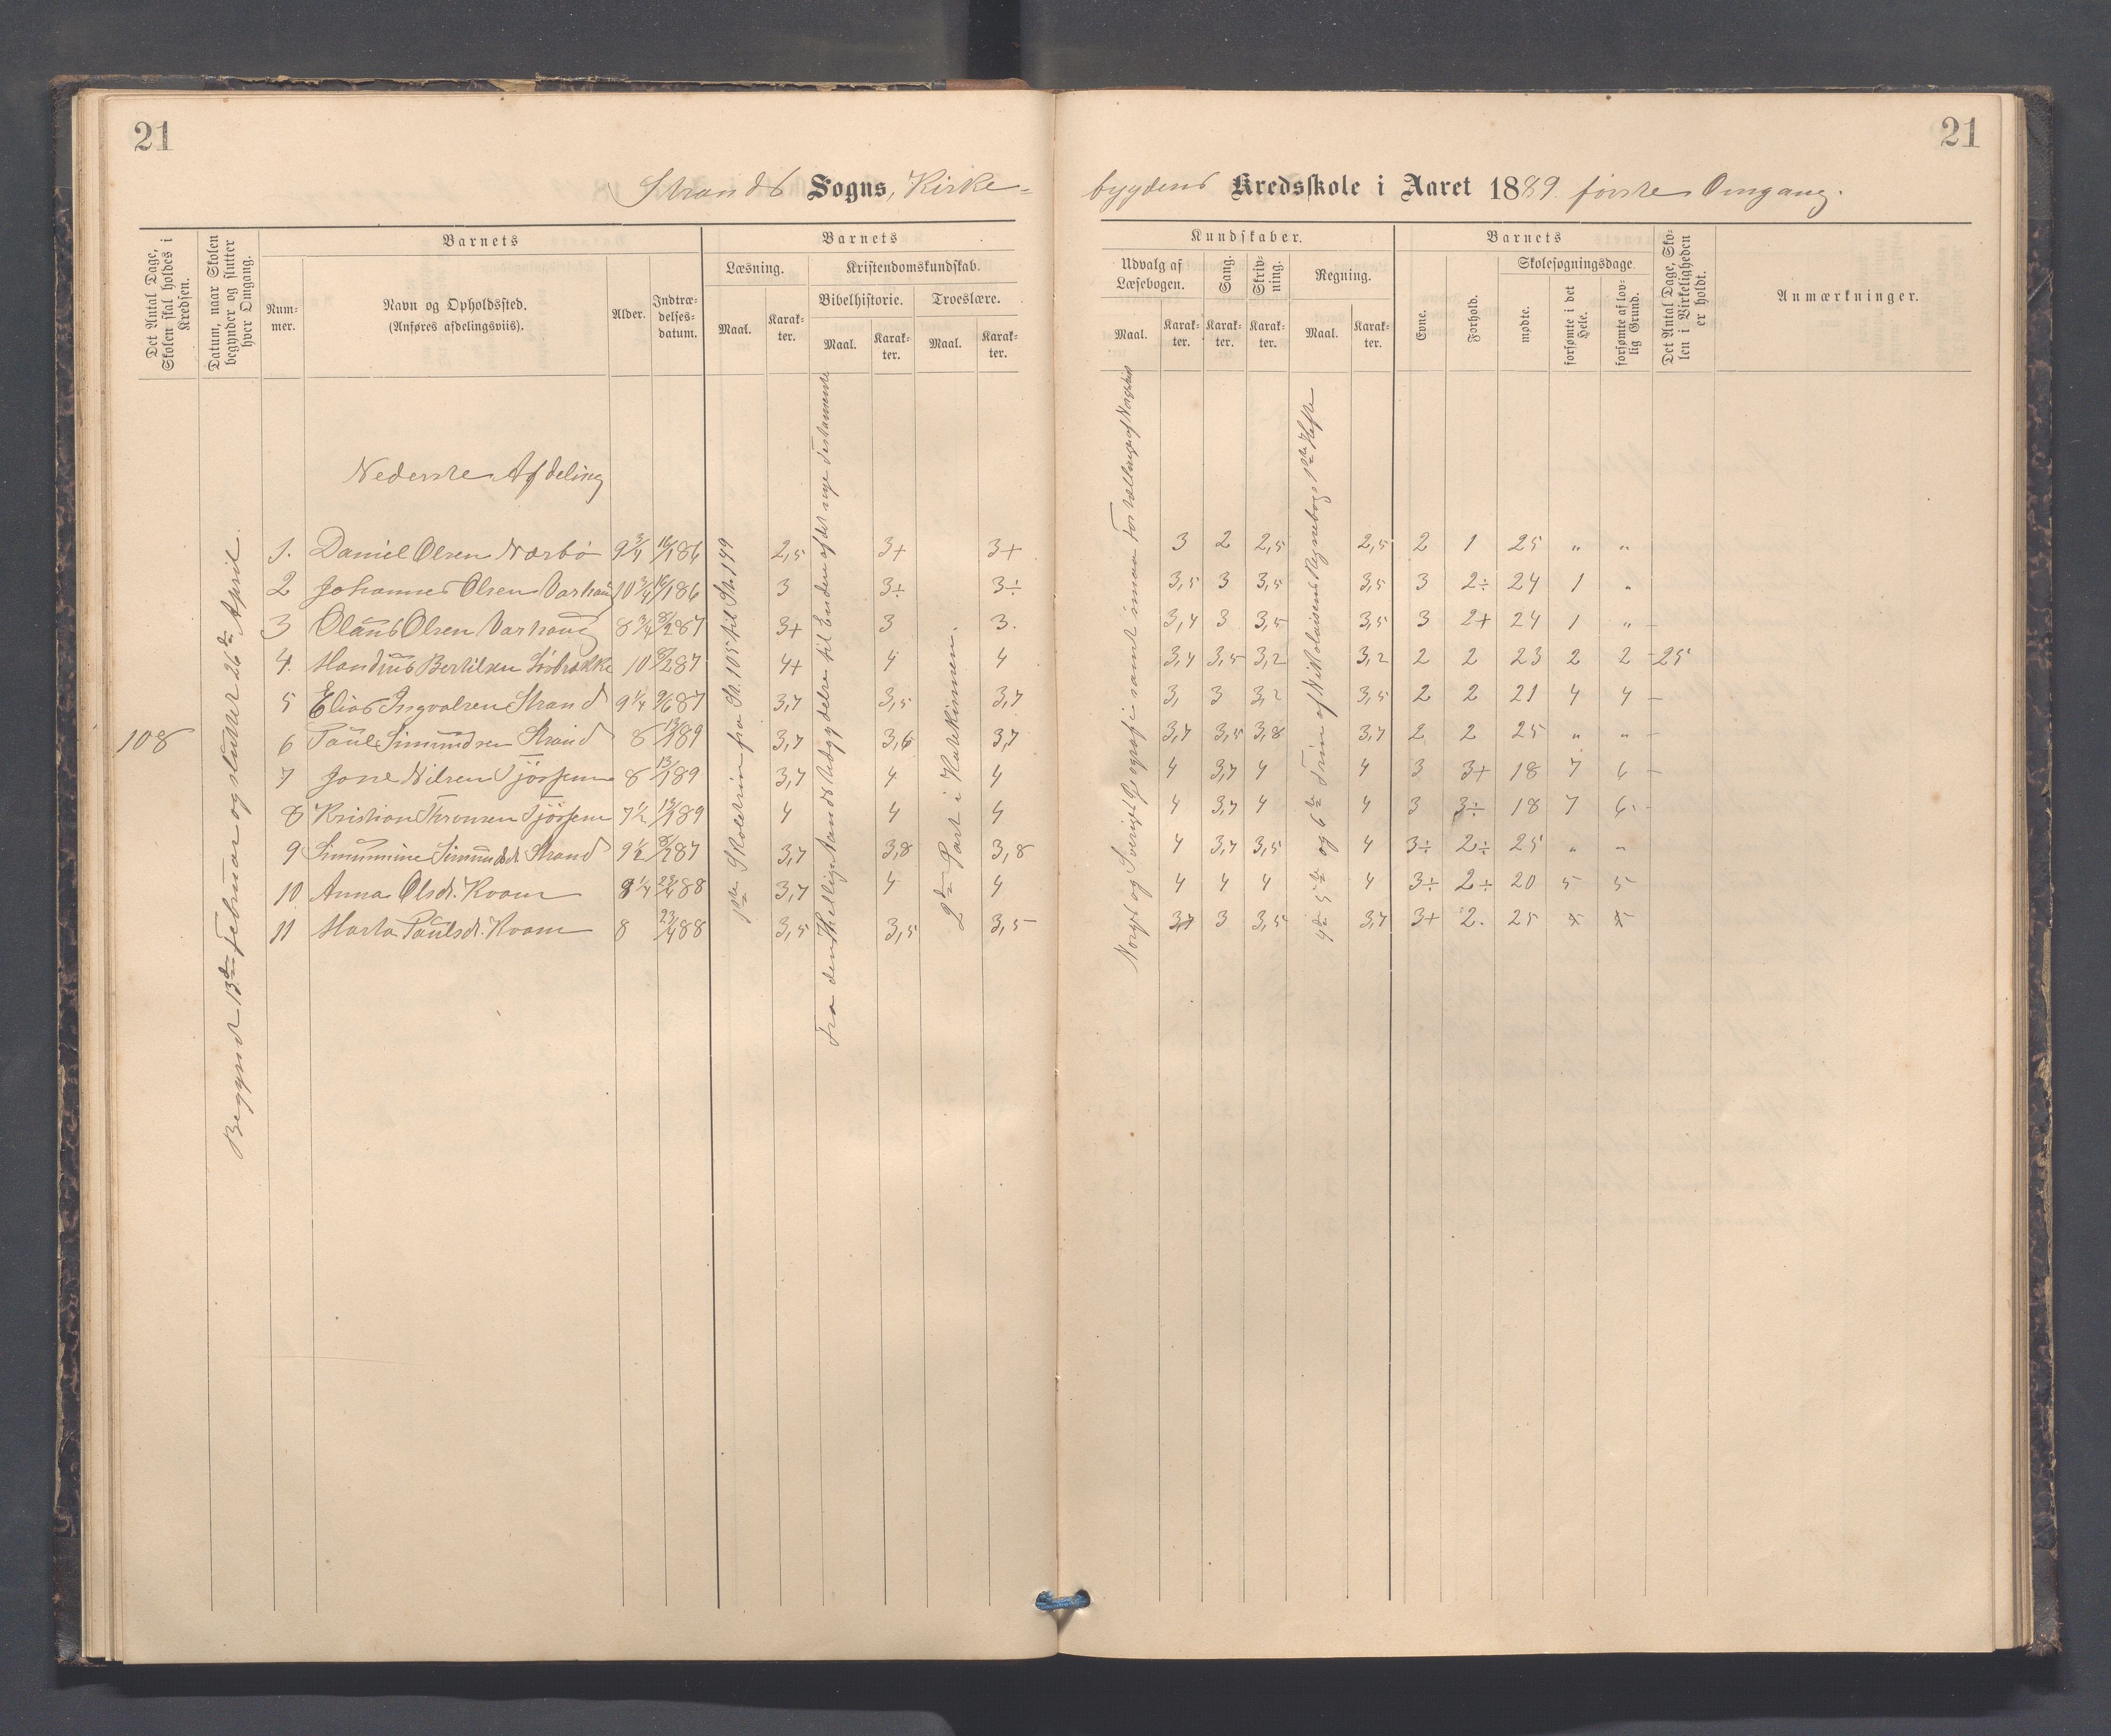 21
21
Strands Sogns, Kirke-
bygdens Kredsskole i Aaret 1889. første Omgang.
Det Antal Dage, Skolen skal holdes i Kredsen.
Datum, naar Skolen begynder og slutter hver Omgang.
Barnets
Num-mer.
Navn og Opholdssted.
(Anføres afdelingsviis).
Alder.
Indtræ-delses-datum.
Barnets
Læsning.
Maal.
Karak-ter.
Kristendomskundskab.
Bibelhistorie.
Maal.
Karak-ter.
Troeslære.
Maal.
Karak-ter.
Kundskaber.
Udvalg af Læsebogen.
Maal.
Karak-ter.
Sang.
Karak-ter.
Skriv-ning.
Karak-ter.
Regning.
Maal.
Karak-ter.
Barnets
Evne.
Forhold.
Skolesøgningsdage.
mødte.
forsømte i det Hele.
forsømte af lov-lig Grund.
Det Antal Dage, Sko-len i Virkeligheden er holdt.
Anmærkninger.
108
Begyndt 13de Februar og sluttet 26de April.
1ste Skoletrin fra St. 105 til St. 149
Fra den Helligaands Udgydelse til Enden af det nye Testamente
2den Part i Katekismen.
Norges og Sveriges Geografi samt smaa Fortællinger af Norgeshist
4de 5te og 6te Trin af Nikolaisens Regnebogs 1ste Hefte
Nederste Afdeling
1. Daniel Olsen Nærbø 9 3/4 16/1 86 2,5 3+ 3+ 3 2 2,5 2,5 2 1 25 " "
2 Johannes Olsen Varhaug 10 3/4 16/1 86 3 3÷ 3÷ 3,5 3 3,5 3,5 3 2÷ 24 1 "
3 Olaus Olsen Varhaug 8 3/4 8/2 87 3+ 3 3. 3,4 3 3,5 3,5 3 2+ 24 1 "
4. Bertilsen 10 8/2 87 4+ 4 4 3,4 3,5 3,2 3,2 2 2 23 2 2 25
5 Elias Ingvalsen Strand 9 1/4 9/6 87 3,7 3,5 3,7 3, 3 3,2 3,5 2 2 21 4 4
6 Paul Simundsen Strand 8 13/1 89 3,7 3,6 3,7 3,7 3,5 3,8 3,7 2 2 25 " "
7 Jone Nilsen Tjøssem 8 13/1 89 3,7 4 4 4 3,7 4 4 3 3+ 18 7 6
8 Kristian Tjøssem 7 1/2 89 4 4 4 4 3,7 4 4 3 3÷ 18 7 6
9 Simunnine Simundsd. Strand 9 1/2 8/2 87 3,7 3,8 3,8 4 3,7 3,5 4 3÷ 2÷ 25 " "
10 Anna Olsdt. Kvam 8 1/4 23/4 88 3,7 4 4 4 4 4 4 3÷ 2÷ 20 5 5
11 Marta Paulsdt. Kvam 8 23/4 88 3,5 3,5 3,5 3,7 3 3,5 3,7 3+ 2. 25